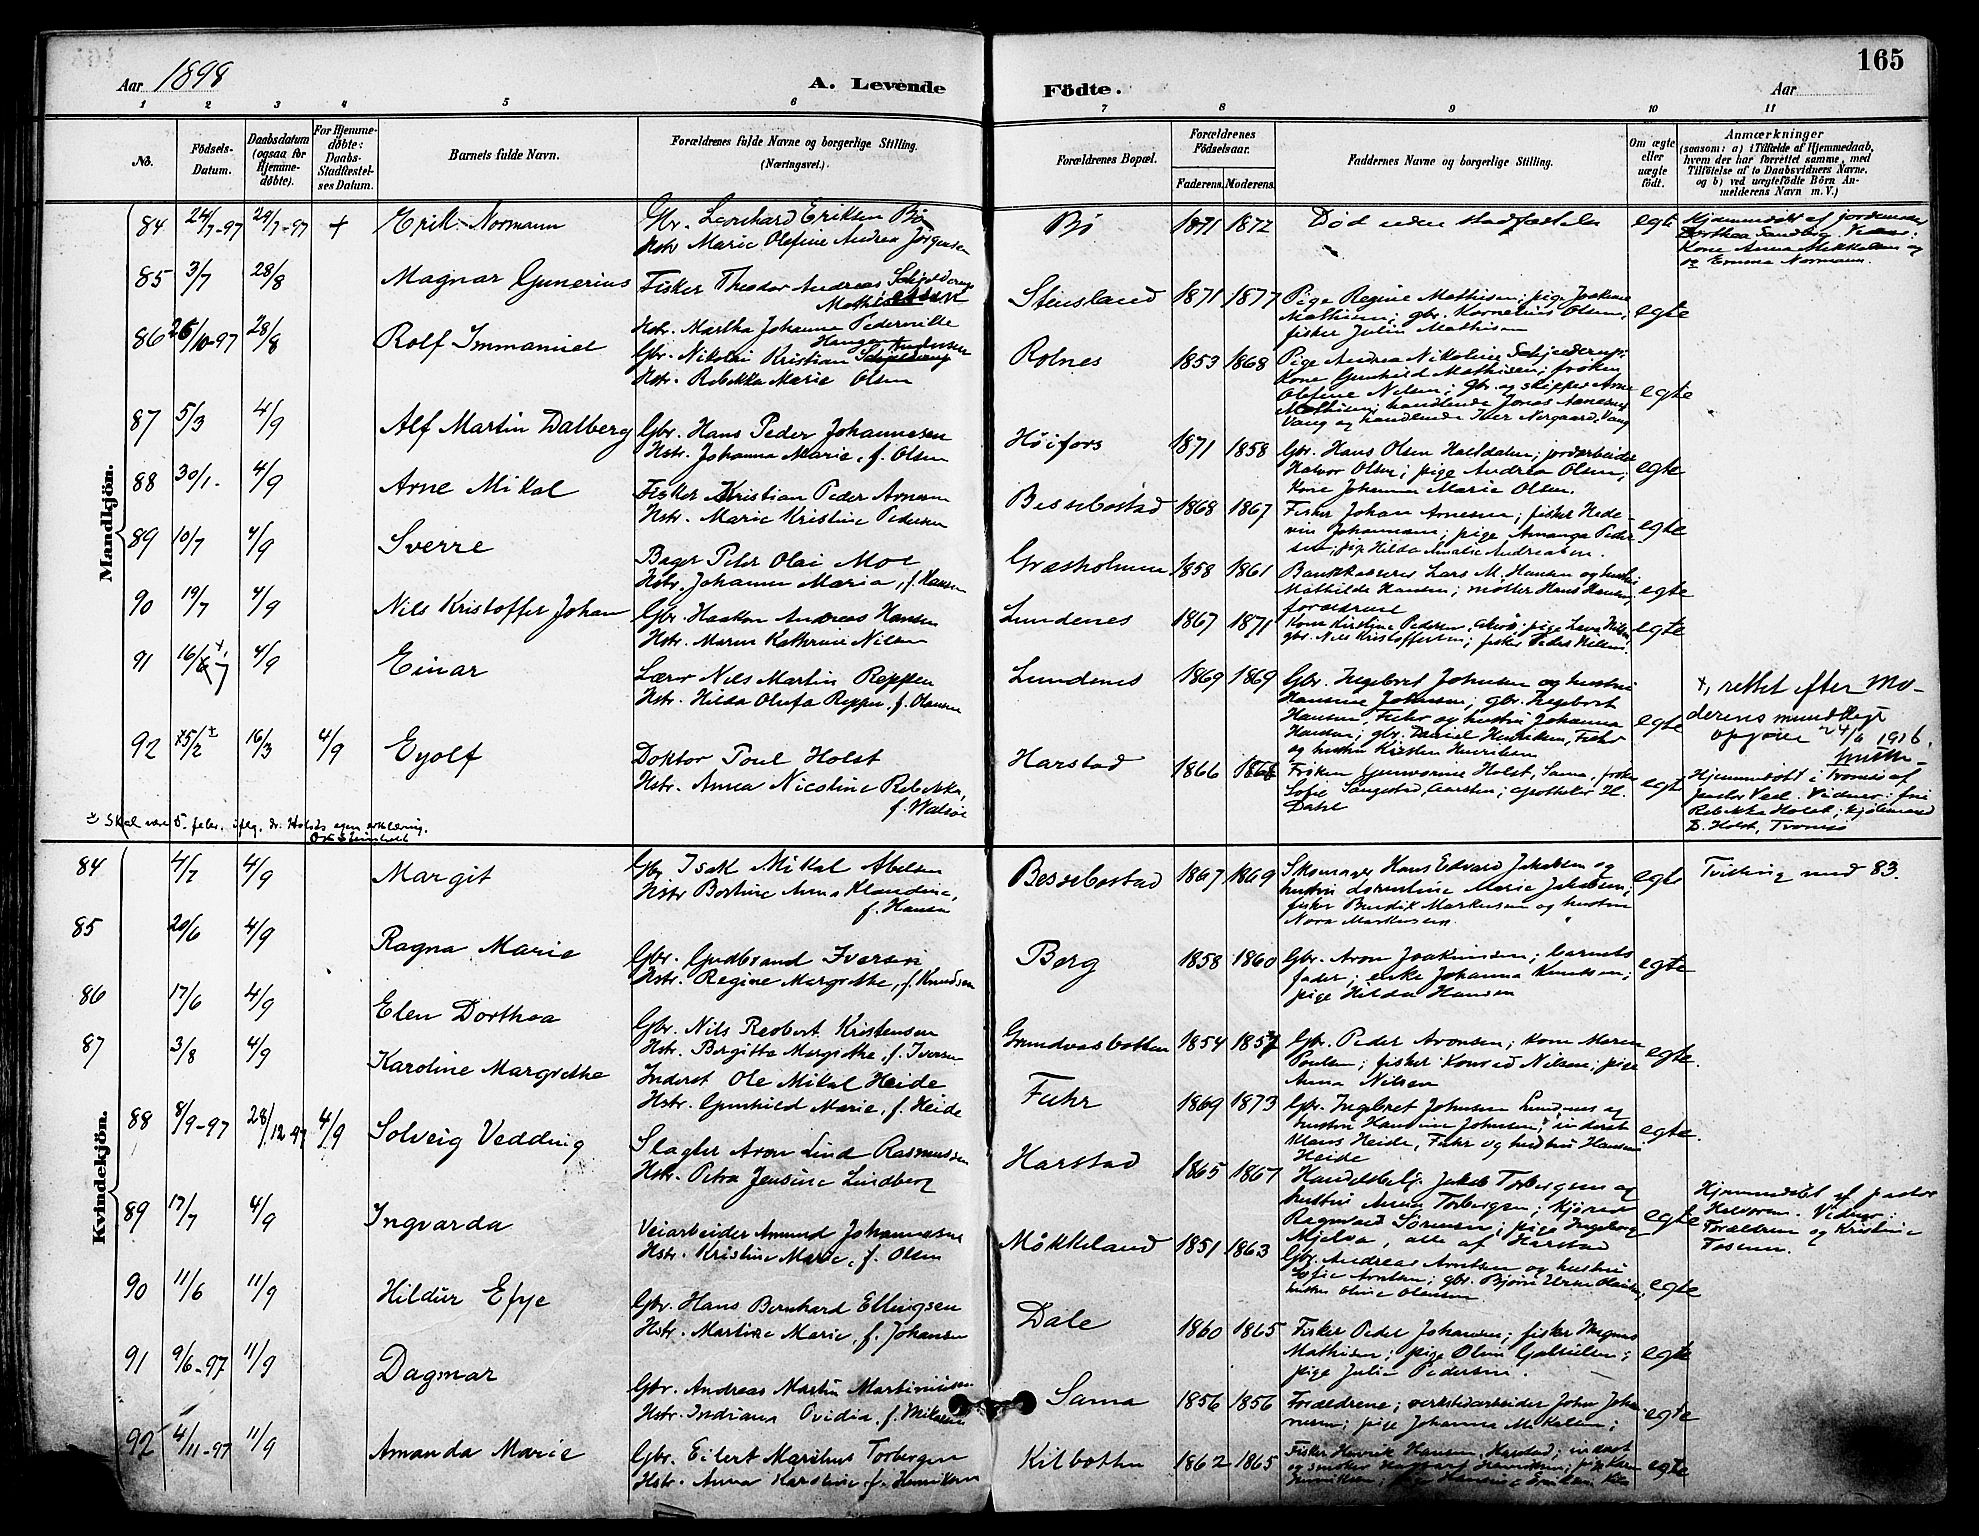 165
Aar 1898
A. Levende Födte.
Aar
1 2 3 4 5 6 7 8 9 10 11
No.
Födsels-Datum.
Daabsdatum (ogsaa for Hjemme-döbte).
For Hjemme-döbte: Daabs-Stadfæstel-ses Datum.
Barnets fulde Navn.
Forældrenes fulde Navne og borgerlige Stilling.
(Næringsvei.)
Forældrenes Bopæl.
Forældrenes Födselsaar.
Faderens. Moderens.
Faddernes Navne og borgerlige Stilling.
Om ægte eller uægte födt.
Anmærkninger
(saasom: a) i Tilfælde af Hjemmedaab,
hvem der har forrettet samme, med
Tilföielse af to Daabsvidners Navne,
og b) ved uægtefödte Börn An-
melderens Navn m. V.)
Mandkjön.
84 24/7-97 29/7-97 + Erik Normann
Gbr. Leonhard Eriksen Bø
Hstr. Marie Olefine Andrea Jørgensen
Bø 1871 1872 Død uden stadfæstelse egte
Hjemmedøbt af jordemoder
Dorthea Sandberg. Vidner:
Kone Anna Mikkelsen og
Emma Normann.
85 3/7 28/8 Magnar Gunerius
Fisker Theodor Andreas
Hstr. Martha Johanna Pedersdtte
Stensland 1871 1877 Pige Regine Mathisen; pige
Mathisen; gbr. Kornelius Olsen;
fisker Julin Mathisen
egte
86 26/10-97 28/8 Rolf Immanuel
Gbr. Nikolai Kristian
Hstr. Rebekka Marie Olsen
Rolnes 1853 1868 Pige Andrea Nikoline Schjelderup;
Kone Gunhild Mathisen; frøken
Olefine Nilsen; gbr. og skipper Arne
Mathisen; handlende Jonas
Vang og handlende Iver Nergaard, Vang
egte
87 5/3 4/9 Alf Martin Dalberg
Gbr. Hans Peder Johannesen
Hstr. Johanna Marie, f. Olsen
Høifors 1871 1858 Gbr. Hans Olsen; jordarbeider
Halvor Olsen; pige Andrea Olsen;
Kone Johanna Marie Olsen.
egte
88 30/1. 4/9 Arne Mikal
Fisker Kristian Peder Arnesen
Hstr. Marie Kristine Pedersen
Bessebostad 1868 1867 Fisker Johan Arnesen; fisker Hede-
vin Johannesen; pige Amanga Peder-
sen; pige Hilda Amalie Andreasen.
egte
89 10/7 4/9 Sverre
Bager Peter Olai Moe
Hstr. Johanna Maria, f. Hansen
Græsholmen 1858 1861 Bankkasserer Lars M. Hansen og hustru
Mathilde Hansen; møller Hans Hansen;
forældrene
egte
90 19/7 4/9 Nils Kristoffer Johan
Gbr. Haakon Andreas Hansen
Hstr. Maren Kathrine Nilsen
Lundenes 1867 1871 Kone Kirstine Pedersen; pige Lava Nilsen;
gbr. Nils Kristoffersen; fisker Peder Nilsen.
egte
91 16/6 7 4/9 Einar
Lærer Nils Martin Reppen
Hstr. Hilda Olufa Reppen, f. Hansen
Lundenes 1869 1869 Gbr. Ingebret Johnsen og hustru
Hansine Johnsen, gbr. Ingebret
Hansen, Fuhr og hustru Johanna
Hansen; gbr. Daniel Henriksen, Fuhr
og hustru Kirsten Henriksen
egte
+, rettet efter Mo-
derens mundtlige
opgave 24/6 1916.
92 25/2 ± 16/3 4/9 Eyolf
Doktor Poul Holst
Hstr. Anna Nicoline Rebekka,
f. Walsøe
Harstad 1866 1868 Frøken Gunvorine Holst, Sama, frøken
Sofie Sangestad, Aarsten; apotheker H.
Dahl
egte
Hjemmedøbt i Tromsø af
pastor Ved. Vidner: fru
Rebekka Holst; kjøbmand
D. Holst, Tromsø
± Skal være 5. febr. iflg. dr. Holsts egen erklæring.
Kvindekjön.
84 4/7 4/9 Margit
Gbr. Isak Mikal Abelsen
Hstr Bertine Anna Klaudine,
f. Hansen
Bessebostad 1867 1869 Skomager Hans Edvard Jakobsen og
hustru Dorentine Marie Jakobsen;
fisker Bendik Markussen og hustru
Nora Markussen.
egte
Tvilling med 83.
85 20/6 4/9 Ragna Marie
Gbr. Gudbrand Iversen
Hstr. Regine Margrethe, f. Knudsen
Berg 1858 1860 Gbr. Aron Joakimsen; barnets
fader; enke Johanna Knudsen;
pige Hilda Hansen
egte
86 17/6 4/9 Elen Dorthea
Gbr. Nils Reobert Kristensen
Hstr. Bergitta Margrethe, f. Iversen
Grundvasbotten 1854 1857 Gbr. Peder Aronsen; kone Maren
Poulsen; fisker Konrad Nilsen; pige
Anna Nilsen
egte.
87 3/8 4/9 Karoline Margrethe
Inderst Ole Mikal Heide
Hstr. Gunhild Marie, f. Heide
Fuhr 1869 1873 Gbr. Ingebret Johnsen Lundenes og
hustru Hansine Johnsen; inderst
Klaus Heide, Fuhr og hustru Hansine
Heide
egte.
88 8/9-97 28/12 97 4/9 Solveig Vedding
Slagter Aron Lind Rasmussen
Hstr. Petra Jensine Lindberg
Harstad 1865 1867 Handelsbetj. Jakob Torbergsen og
hustru Anna Torbergsen; kjøren
Ragnvald Sørensen; pige Ingeborg
Mjelva, alle af Harstad
egte
Hjemmedøbt af pastor
Halvorsen. Vidner:
Forældrene og Kristine
89 17/7 4/9 Ingvarda
Veiarbeider Amund Johannesen
Hstr. Kristine Marie, f. Olsen
Møkkeland 1851 1863 Gbr. Andreas Arntsen og hustru
Sofie Arntsen; gbr. Bjørn
hustru Oline Olausen
egte
90 11/6 11/9 Hildur Efye
Gbr. Hans Bernhard Ellingsen
Hstr. Martine Marie, f. Johansen
Dale 1860 1865 Fisker Peder Johansen; fisker Magnus
Mathisen; pige Oline Gabrielsen;
pige Julie Pedersen.
egte
91 9/6-97 11/9 Dagmar
Gbr. Andreas Martin Martiniussen
Hstr. Indriana Ovidia, f. Mikalsen
Sama 1856 1856 Forældrene; verkstedarbeider John Johan-
nesen; pige Johanna Mikalsen;
egte
92 4/11-97 11/9 Amanda Marie
Gbr. Eilert Marthus Torbergsen
Hstr. Anna Karoline, f. Henriksen
Kilbotten 1862 1865 Fisker Henrik Hansen, Harstad; inderst
egte